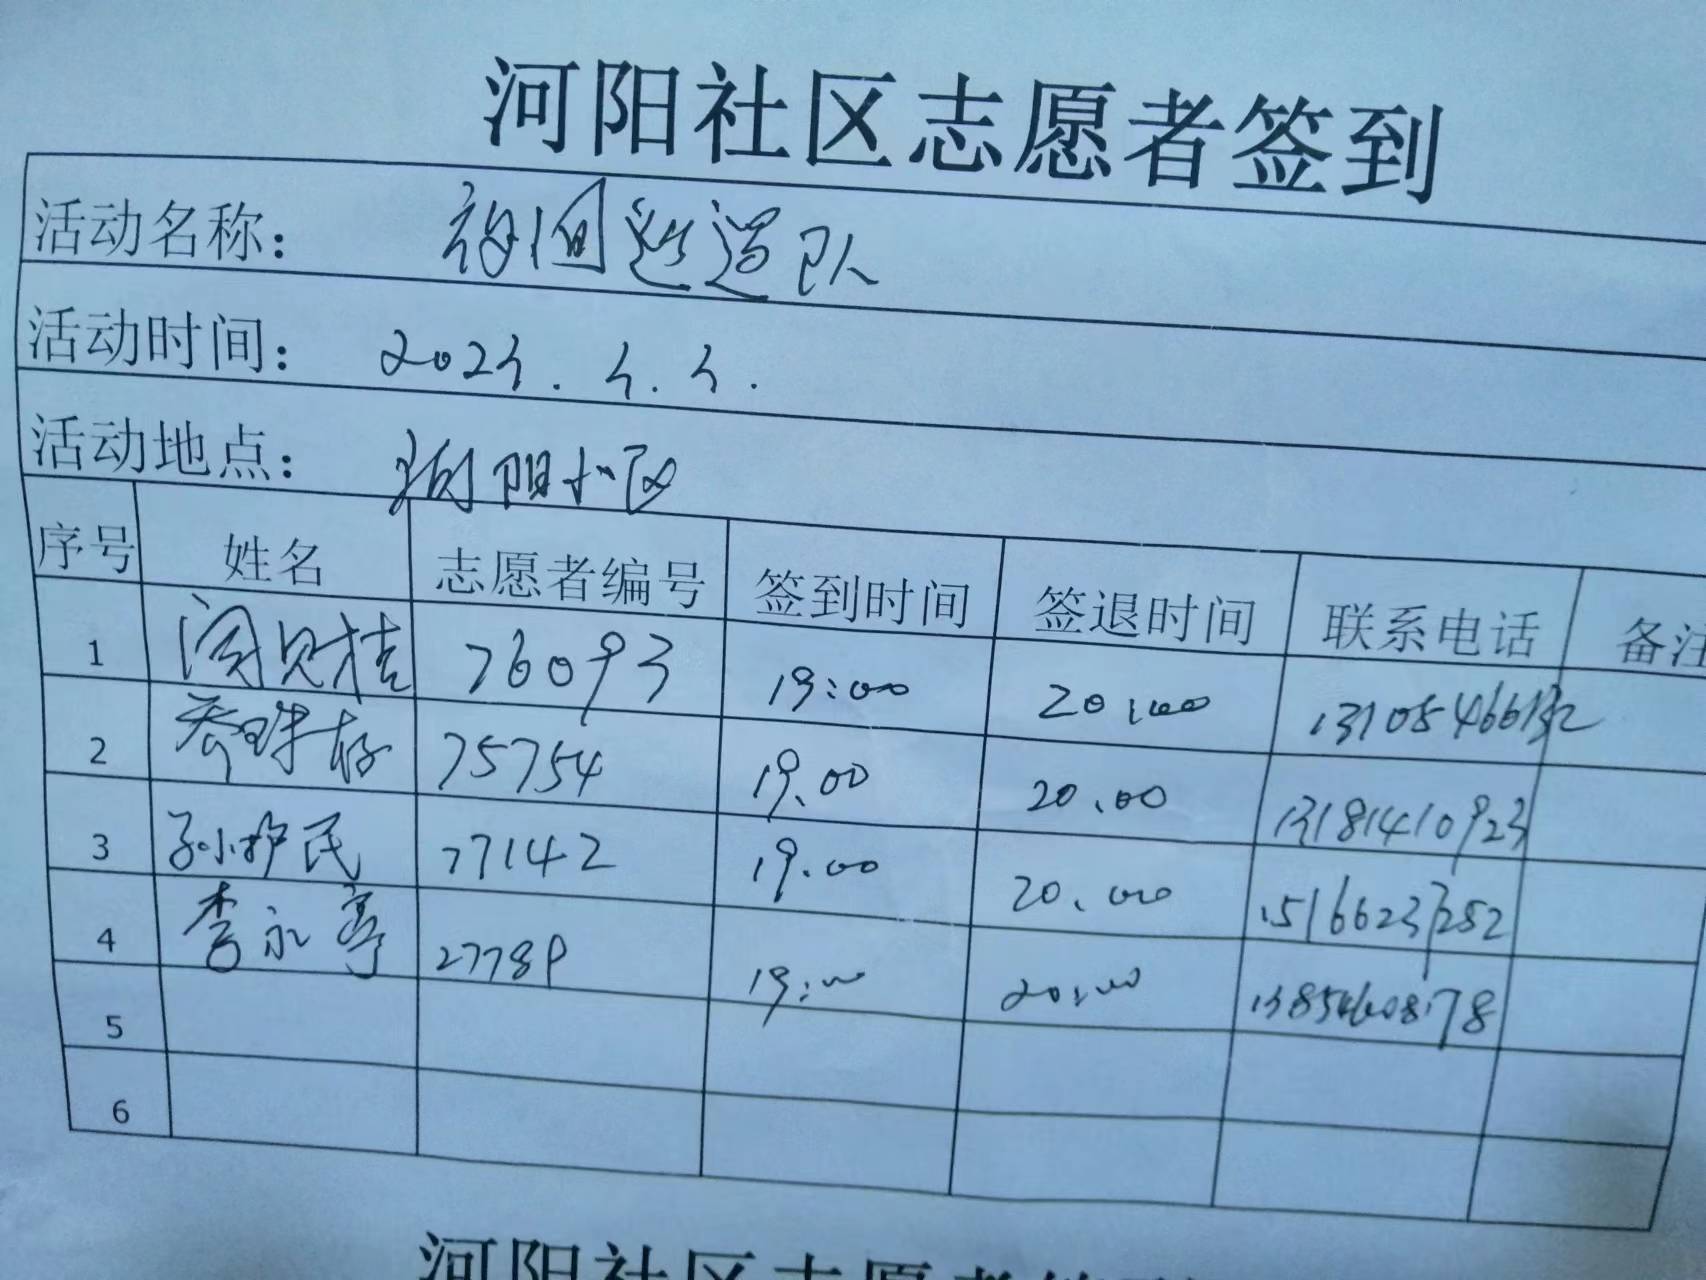 河阳社区志愿者签到
活动名称： 夜间巡逻队
活动时间： 2024.4.4.
活动地点： 河阳小区
序号 姓名 志愿者编号 签到时间 签退时间 联系电话 备注
1 76093 19:00 20:00
2 75754 19.00 20.00 13181410923
3 孙护民 77142 19.00 20.00 15166237252
4 李永亭 27789 19:00 20:00
5
6
河阳社区志愿者签到